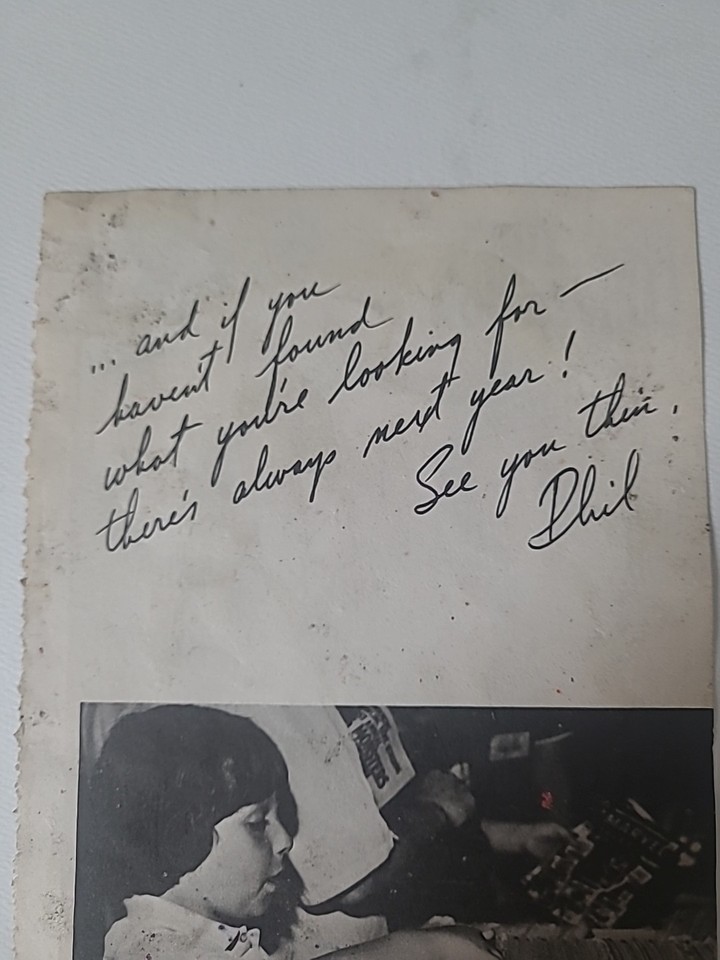 ... and if you
haven't found
what you're looking for —
there's always next year!
See you then.
Phil